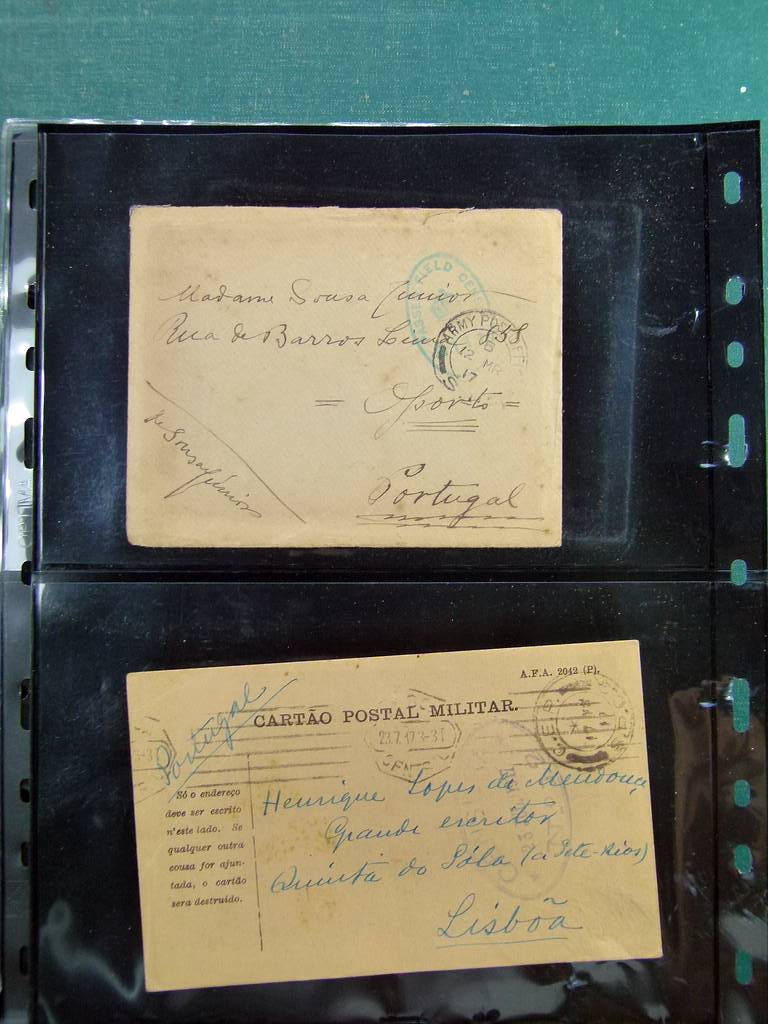 FIELD CENSOR
Madame Sousa Junior
Rua de Barros Lima 858
ARMY POST OFFICE
12 MR
17
= Oporto =
de Sousa Júnior
Portugal
A.F.A. 2042 (P).
Portugal
CARTÃO POSTAL MILITAR.
23.7.17. 3-3T
Só o endereço
deve ser escrito
n'este lado. Se
qualquer outra
cousa for ajun-
tada, o cartão
sera destruido.
Henrique Lopes de Mendonça
Grande escritor
Quinta do (a Sete-Rios)
Lisbôa